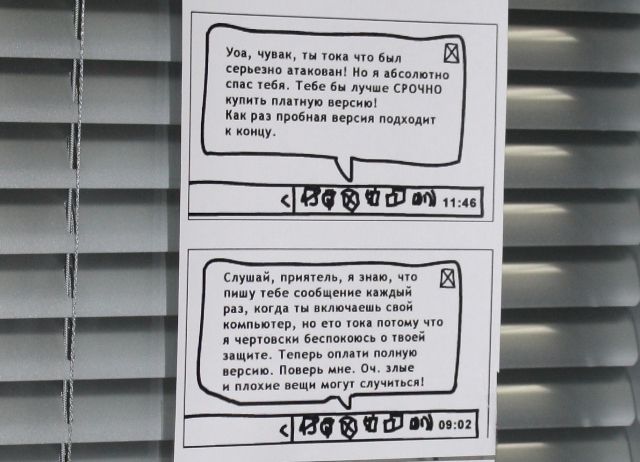 Уоа, чувак, ты тока что был
серьезно атакован! Но я абсолютно
спас тебя. Тебе бы лучше СРОЧНО
купить платную версию!
Как раз пробная версия подходит
к концу.
< 11:46
Слушай, приятель, я знаю, что
пишу тебе сообщение каждый
раз, когда ты включаешь свой
компьютер, но ето тока потому что
я чертовски беспокоюсь о твоей
защите. Теперь оплати полную
версию. Поверь мне. Оч. злые
и плохие вещи могут случиться!
< 09:02